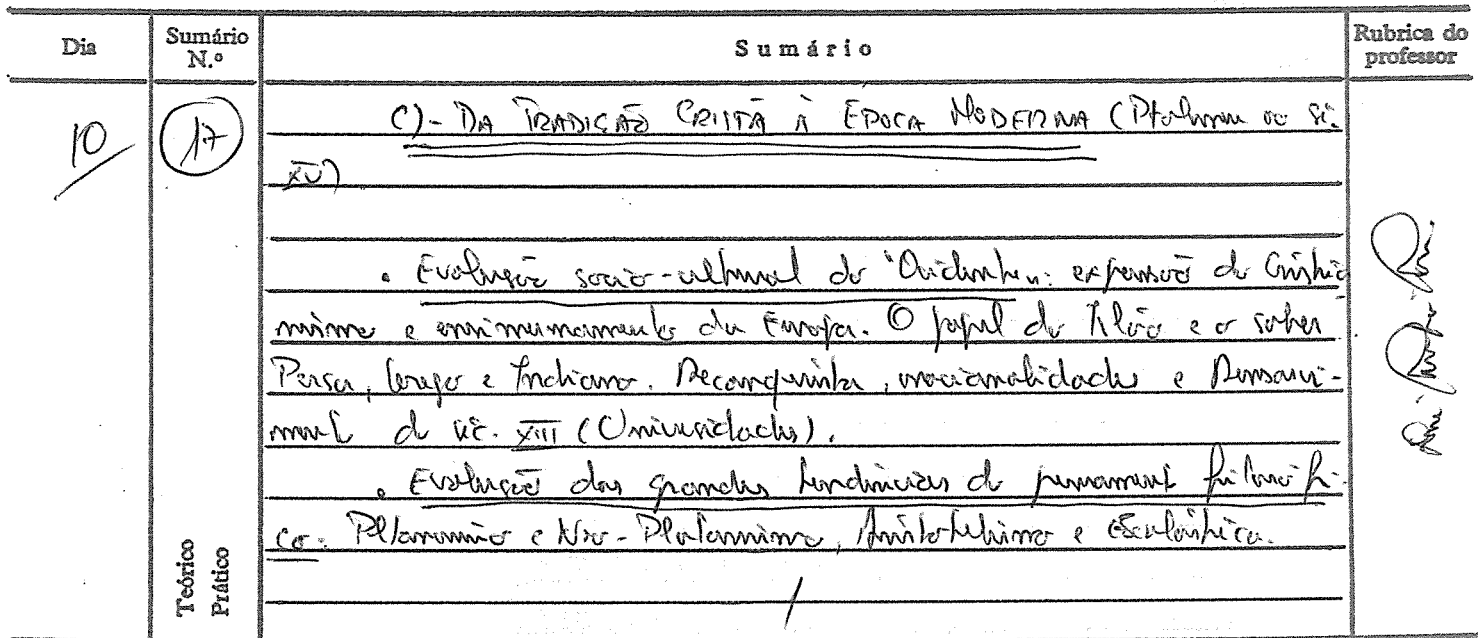 Dia
Sumário N.º
Sumário
Rubrica do professor
10
17
C)- DA TRADIÇÃO CRISTÃ À ÉPOCA MODERNA (Ptolomeu ao séc.
XV)
. Evolução socio-cultural do "Ocidente": expansão do Cristia
nismo e da Europa. O papel do Islão e o saber
Persa, Grego e Indiano. Reconquista, nacionalidades e Renasci-
ment do séc. XIII (Universidades).
. Evolução das grandes tendências do pensament filosófi-
co: Platonismo e Neo-Platonismo, Aristotelismo e Escolástica.
Teórico
Prático